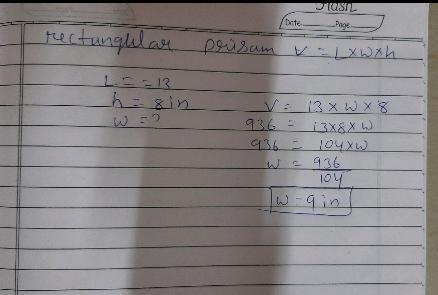 Date Page
rectangular prisam V = L×W×h
L = - 13
h = 8 in
W = ?
V = 13 × W × 8
936 = 13×8×W
936 = 104×W
W = 936
104
W = 9 in